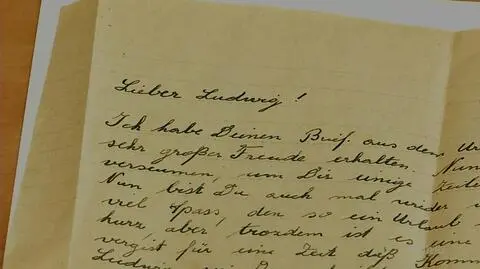 Lieber Ludwig!
Ich habe Deinen Brief. aus dem Ur
sehr großer Freude erhalten. Nun
verseumen, um Dir einige Zeile
Nun bist Du auch mal wieder
viel Spass, den so ein Urlaub
kurz, aber trozdem ist es eine
vergist für eine Zeit daß Komm
Ludwig